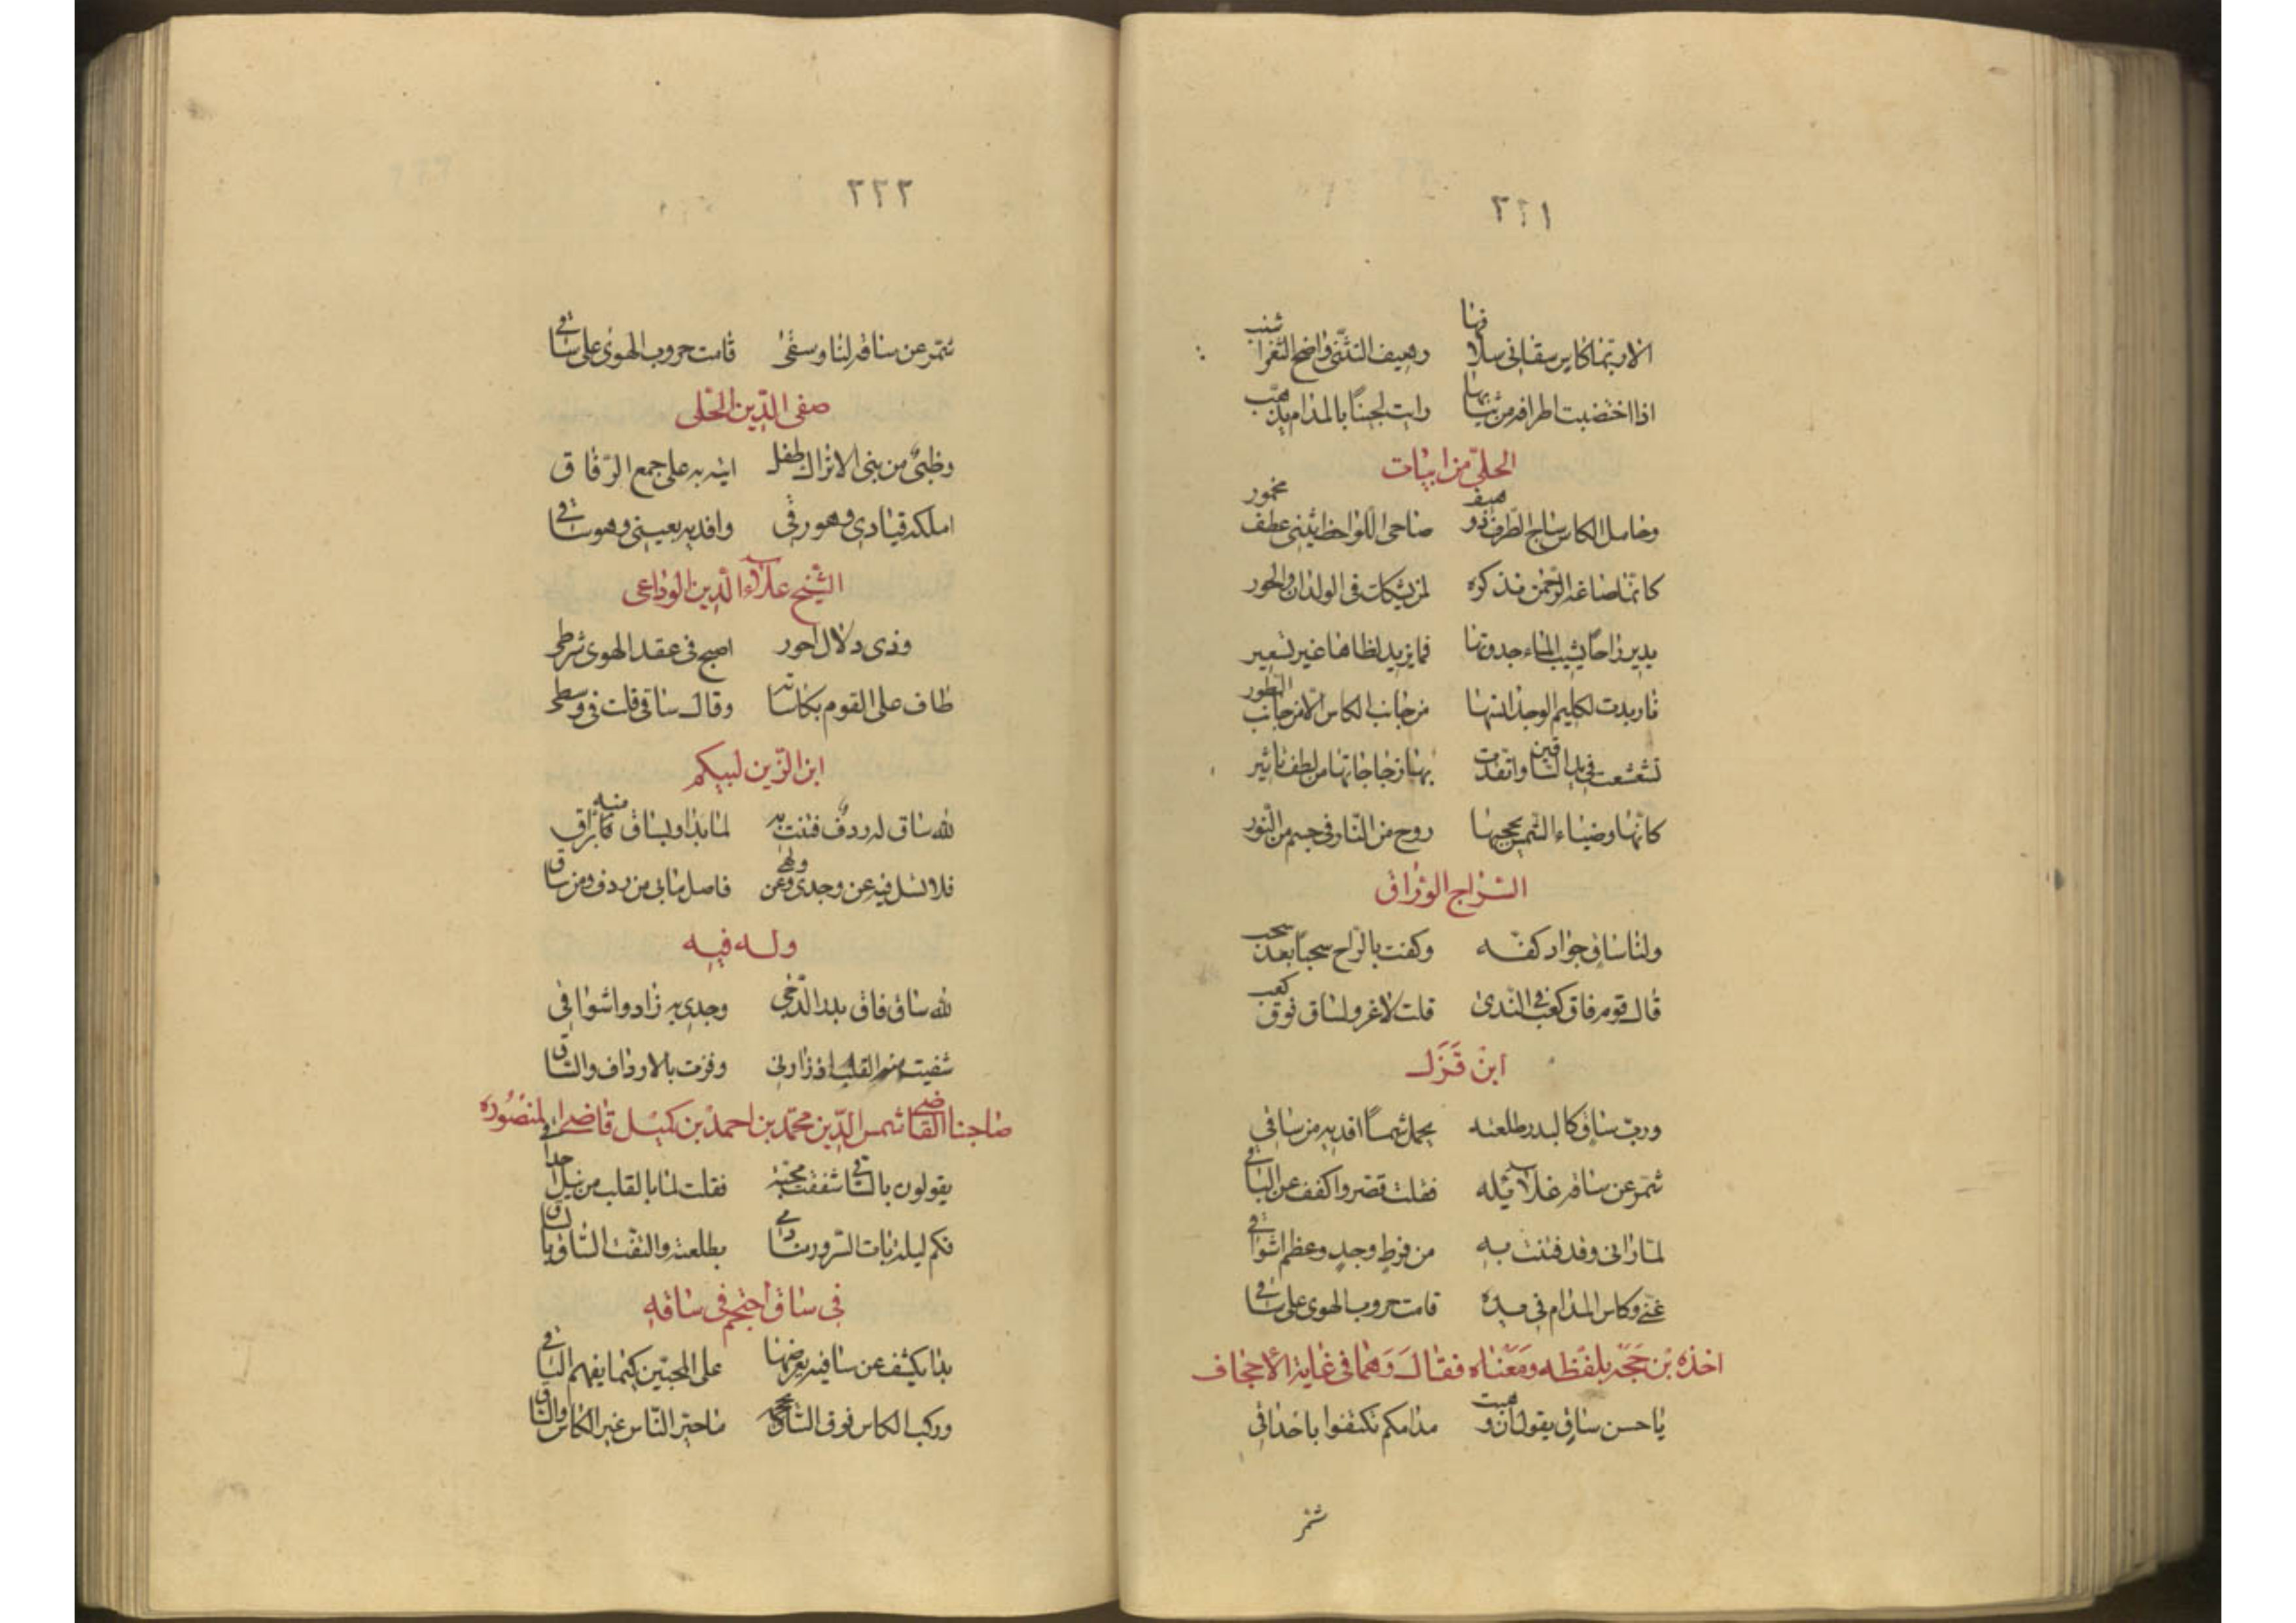 ٢٢١
الا ربما كاس سقاني سلافها رهيف التثني واضح الثغر اشنب
اذا اختضبت اطرافه من شبابها رايت لجينا بالمدام يذهب
الحلي من ابيات
وحامل الكاس ساجي الطرف ذو هيف صاحي اللواحظ يثني عطف مخمور
كانما صاغه الرحمن تذكرة لمن يشكك في الولدان والحور
يدير راحا يشيب الماء جدوتها فما يزيد لظاها غير تسعير
نار بدت لكليم الوجد انسها من جانب الكاس لا من جانب الطور
تشعشعت في يد الساقين واتقدت بها زجاجاتها من لطف تاثير
كانها وضياء الشمس يحجبها روح من النار في جسم من النور
السراج الوراق
ولنا ساق جواد كفه وكفت بالراح سحبا بعد سحب
قال قوم فاق كعبا في الندى قلت لا غرو لساق فوق كعب
ابن قزل
ورب ساق كالبدر طلعته يحمل شمسا افديه من ساقي
شمر عن ساقه غلائله فقلت قصر واكفف عن الباقي
لما راني وقد فتنت به من فرط وجد وعظم اشواقي
غنى وكاس المدام في يده قامت حروب الهوى على ساقي
اخذه بن حجه بلفظه ومعناه فقال وهما في غاية الاجحاف
يا حسن ساق يقول ان وهبت مدامكم تكتفوا باحداقي
شمر
٢٢٢
شمر عن ساقه لنا وسقى قامت حروب الهوى على ساقي
صفي الدين الحلي
وظبي من بني الاتراك طفل اتيه به على جمع الرفاق
املكه قيادي وهو رقي وافديه بعيني وهو ساقي
الشيخ علاء الدين الوداعي
وذي دلال احور اصبح في عقد الهوى شرطي
طاف على القوم بكاساته وقال ساقي قلت في وسطي
ابن الزين لبيكم
لله ساق له ردف فتنت به لما بدا وبساق منه براق
فلا تسل فيه عن وجدي وعن ولهي فاصل ما بي من ردف ومن ساق
وله فيه
لله ساق فاق بدر الدجى وجدي به زاد واشواقي
شفيت منه القلب اذ زارني وفزت بالارداف والساق
صاحبنا القاضي شمس الدين محمد بن احمد بن كميل قاضي المنصوره
يقولون بالساقي شغفت محبة فقلت لما بالقلب من نيل احداقي
فكم ليلة بات السرور منادمي بطلعته والتفت الساق بالساق
في ساق احتجم في ساقه
بدا يكشف عن ساقيه يعرضها على المحبين كيما يفهم الباقي
وركب الكاس فوق الساق محجمه ما حير الناس غير الكاس والساق